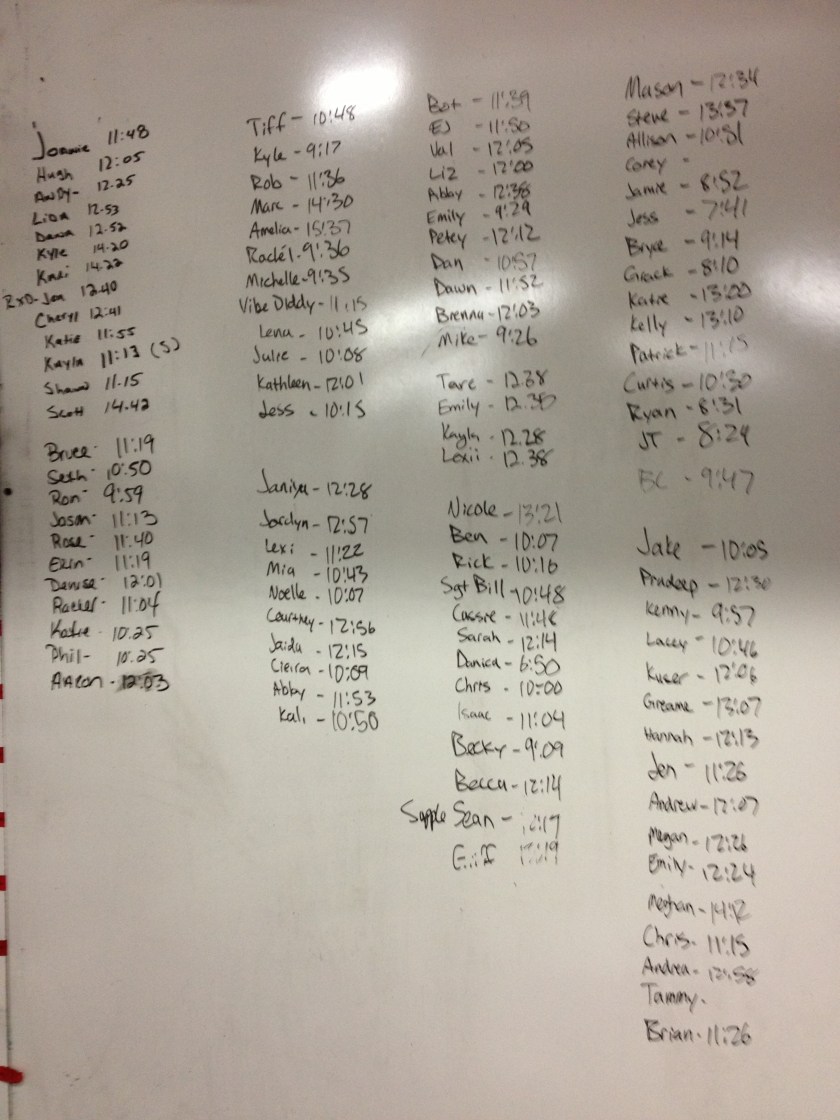 Joannie 11:48
Hugh 12:05
Andy- 12.25
Lisa 12.53
Dawn 12.52
Kyle 14.20
Kari 14.22
RxD-Jen 12.40
Cheryl 12:41
Katie 11:55
Kayla 11:13 (S)
Shawn 11.15
Scott 14.42
Bruce- 11:19
Seth- 10:50
Ron- 9:59
Jason- 11:13
Rose- 11:40
Erin- 11:19
Denise- 12:01
Rachel- 11:04
Katie- 10.25
Phil- 10:25
Aaron - 12:03
Tiff - 10:48
Kyle - 9:17
Rob - 11:36
Marc - 14:30
Amelia - 15:37
Rachel - 9:36
Michelle - 9:35
Vibe Diddy - 11:15
Lena - 10:45
Julie - 10:08
Kathleen - 12:01
Jess - 10:15
Janiya - 12:28
Jocelyn - 12:57
Lexi - 11:22
Mia - 10:43
Noelle - 10:07
Courtney - 12:56
Jaida - 12:15
Cieira - 10:09
Abby - 11:53
Kali - 10:50
Bot - 11:39
EJ - 11:50
Val - 12:05
Liz - 12:00
Abby - 12:38
Emily - 9:29
Petey - 12:12
Dan 10:57
Dawn - 11:52
Brenna - 12:03
Mike - 9:26
Tare - 12.38
Emily - 12.30
Kayla - 12.28
Lexii - 12.38
Nicole - 13:21
Ben - 10:07
Rick - 10:16
Sgt Bill - 10:48
Cassie - 11:48
Sarah - 12:14
Danica - 6:50
Chris - 10:00
Isaac - 11:04
Becky - 9:09
Becca - 12:14
Sean -
Griff
Mason - 12:34
Steve - 13:37
Allison - 10:51
Corey -
Jamie - 8:52
Jess - 7:41
Bryce - 9:14
8:10
Katie - 13:00
Kelly - 13:10
Patrick - 11:15
Curtis - 10:30
Ryan - 8:31
JT - 8:24
BC - 9:47
Jake - 10:05
Pradeep - 12:30
Kenny - 9:57
Lacey - 10:46
Kuser - 12:06
Greame - 13:07
Hannah - 12:13
Jen - 11:26
Andrew - 12:07
Megan - 12:26
Emily - 12:24
Meghan - 14:12
Chris - 11:15
Andrea - 12:58
Tammy -
Brian - 11:26